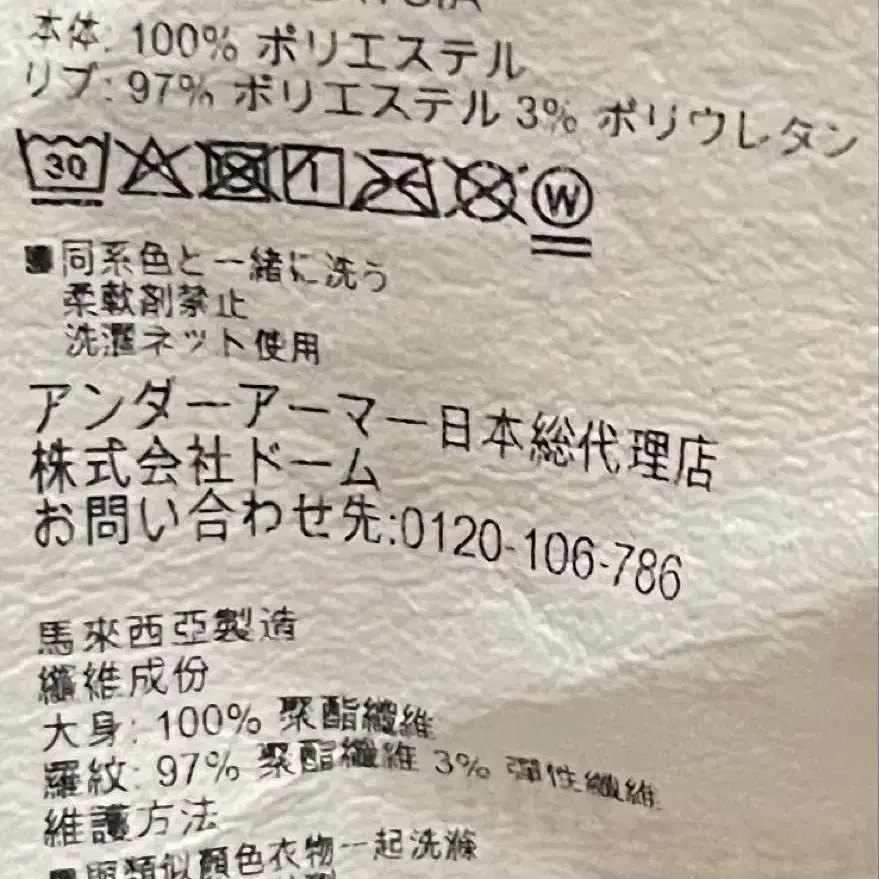 本体: 100% ポリエステル
リブ: 97% ポリエステル 3% ポリウレタン
30 W
■同系色と一緒に洗う
柔軟剤禁止
洗濯ネット使用
アンダーアーマー日本総代理店
株式会社ドーム
お問い合わせ先:0120-106-786
馬來西亞製造
纖維成份
大身: 100% 聚酯纖維
羅紋: 97% 聚酯纖維 3% 彈性纖維
維護方法
■與類似顏色衣物一起洗滌